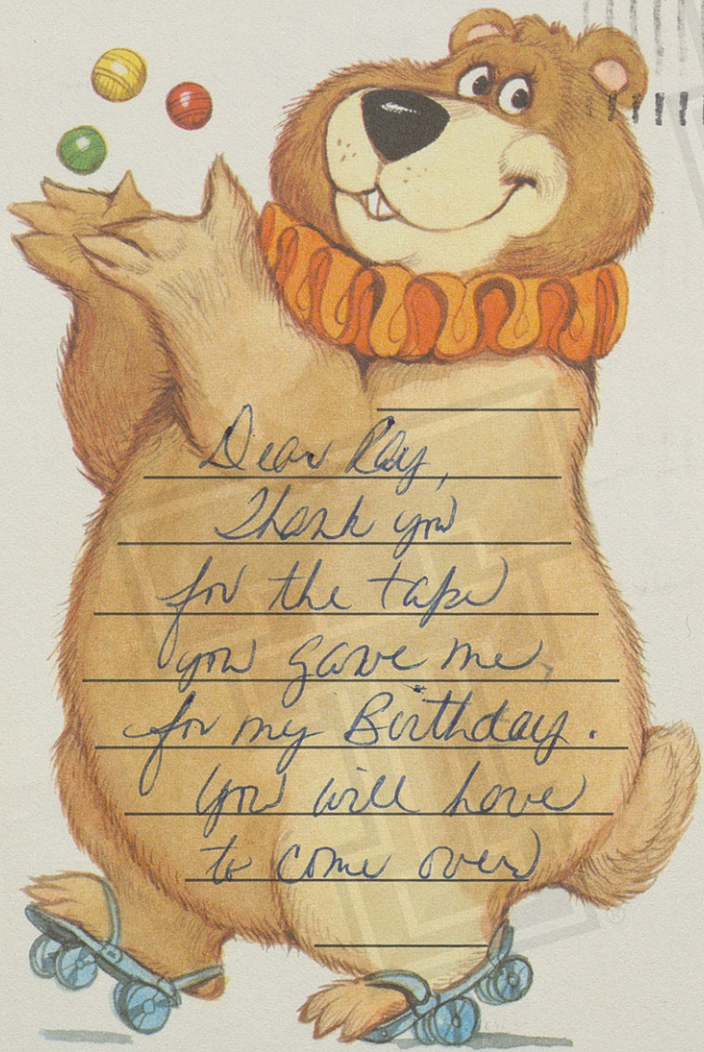 Dear Ray,
Thank you
for the tape
you gave me
for my Birthday.
You will have
to come over